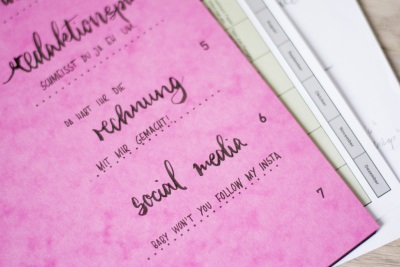 redaktionspl
SCHMEISST DU JA EH UM
5
DA HABT IHR DIE
rechnung
MIT MIR GEMACHT!
6
social media
BABY WON'T YOU FOLLOW MY INSTA
7